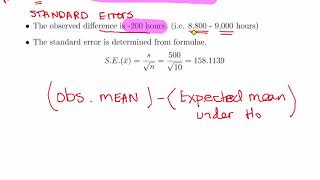 STANDARD ERRORS
• The observed difference is -200 hours. (i.e. 8,800 - 9,000 hours)
• The standard error is determined from formulae.
S.E.(x̄) = s/√n = 500/√10 = 158.1139
(OBS. MEAN) - (Expected mean
under Ho)